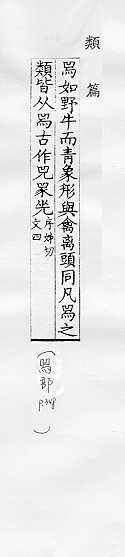 類篇
𤉡如野牛而青象形與禽离頭同凡𤉡之
類皆从𤉡古作兕序姊切
文四
(𤉡部
P348)